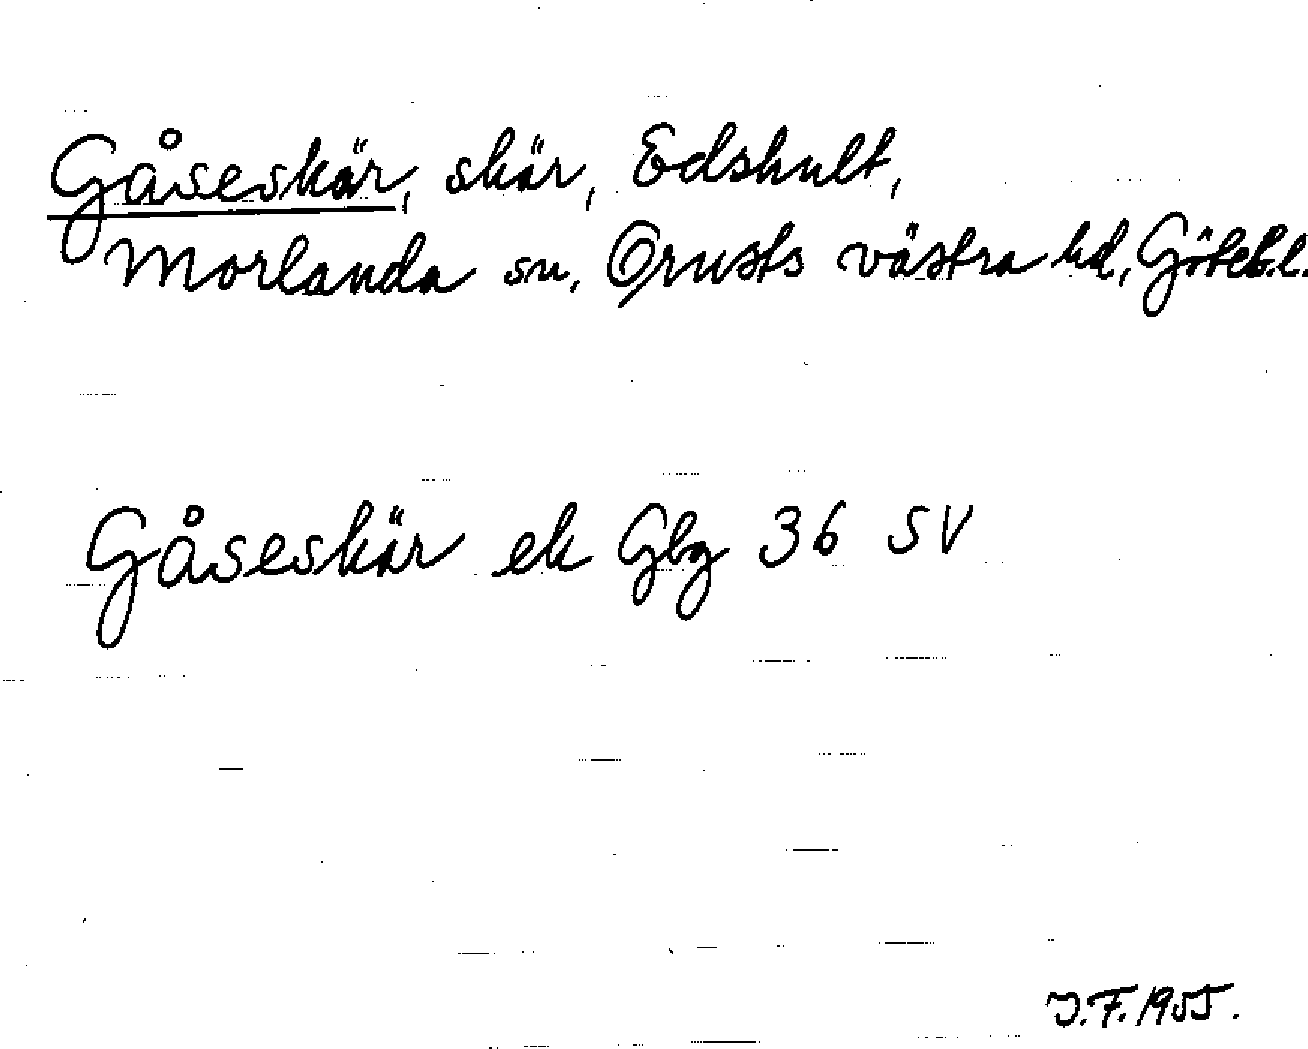 Gåseskär, skär, Edshult,
Morlanda sn, Orusts västra hd, Göteb.l.
Gåseskär ek Gbg 36 SV
J.F. 1955.